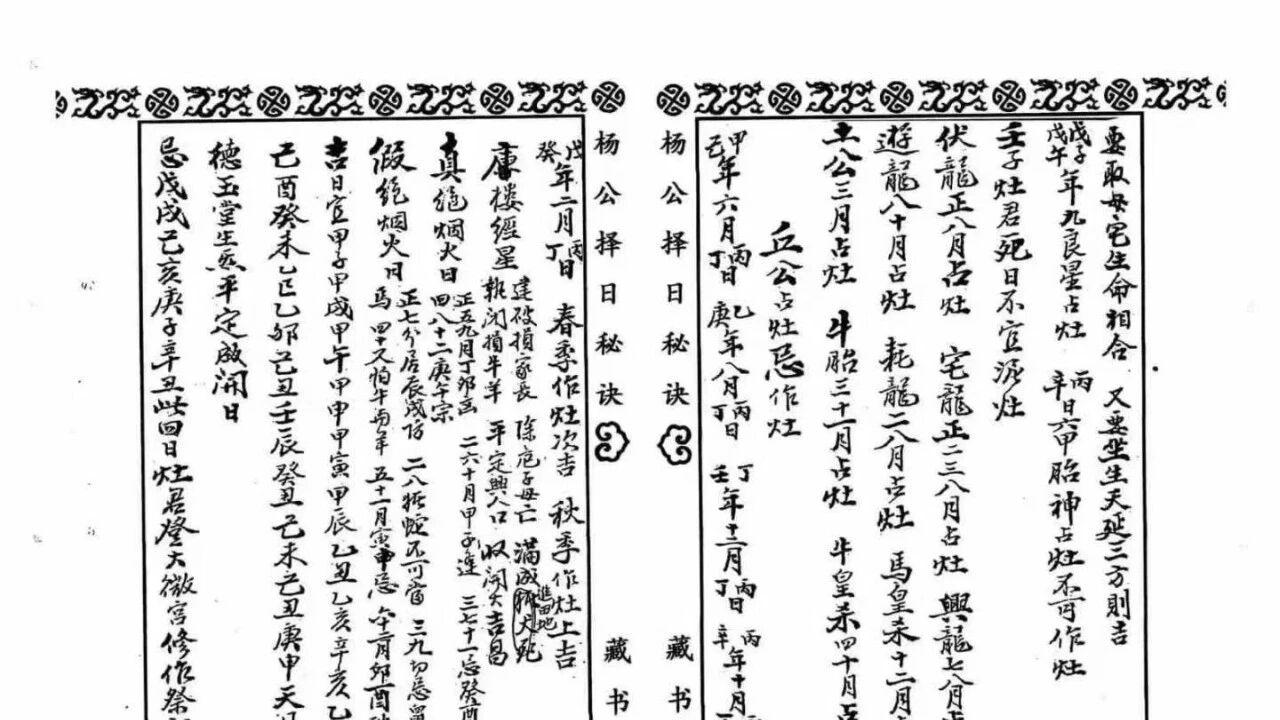 要取母宅生命相合　又要坐生天延三方則吉
戊子戊午年九良星占灶　丙辛日六甲胎神占灶不可作灶
壬子灶君死日不宜泥灶
伏龍正八月占灶　宅龍正二三八月占灶　興龍七八月占
遊龍八十月占灶　耗龍二八月占灶　馬皇杀十二月占
土公三月占灶　牛胎三十一月占灶　牛皇杀四十月占
丘公占灶忌作灶
甲己年六月丙丁日　乙庚年八月丙丁日　丁壬年十二月丙丁日　丙辛年十月丙
杨公择日秘诀
藏书
杨公择日秘诀
藏书
戊癸年二月丙丁日　春季作灶次吉　秋季作灶上吉
唐楼經星　建破損家長　除危子母亡　滿成豬犬死　進田地　執闭損牛羊　平定興人口　收開大吉昌
真绝烟火日　正五九月丁卯亥　二六十月甲子逢　三七十一忌癸酉　四八十二庚午宗
假绝烟火日　正七分居辰戌防　二八蛇不可當　三九切忌　馬　四十又怕牛両羊　五十一月寅申忌　六十二月卯酉
吉日宜甲子甲戌甲午甲申甲寅甲辰乙丑乙亥辛亥乙
己酉癸未乙巳乙卯己丑壬辰癸丑己未己丑庚申天
德玉堂生炁平定成開日
忌戊戌己亥庚子辛丑此四日灶君登大微宮修作祭